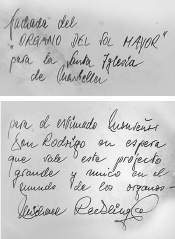 Fachada del
"ORGANO DEL SOL MAYOR"
para la Santa Iglesia
de Marbella
para el estimado
Don Rodrigo en espera
que sale este projecto
grande y unico en el
mundo de los organos
Michael Reckling